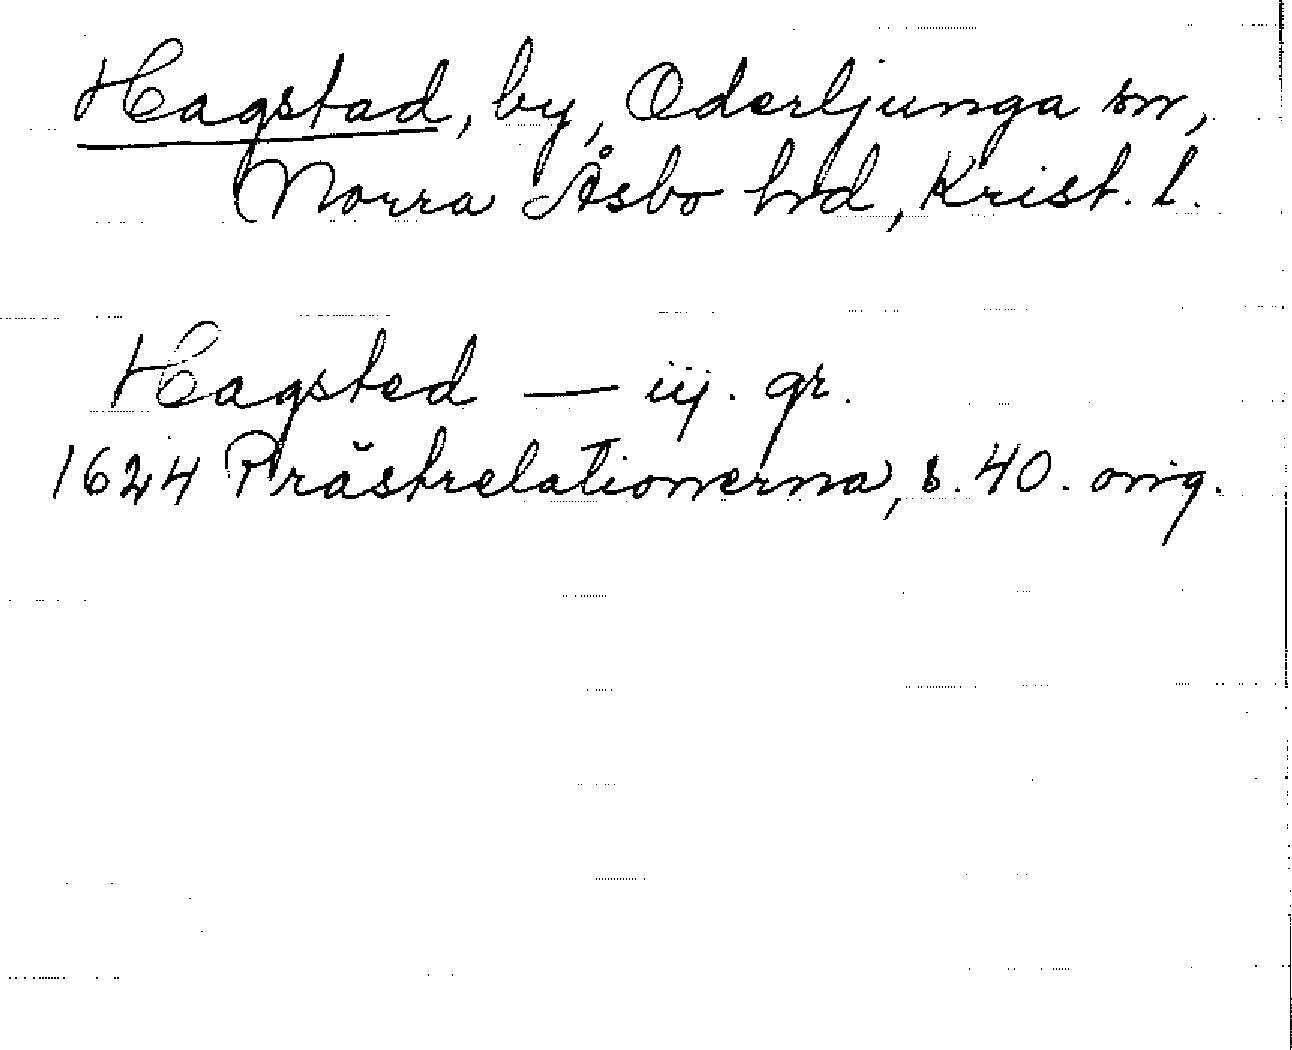 Hagstad, by, Oderljunga sn,
Norra Åsbo hrd, Krist. l.
Hagsted — iij. gr.
1624 Prästrelationerna, s. 40. omg.